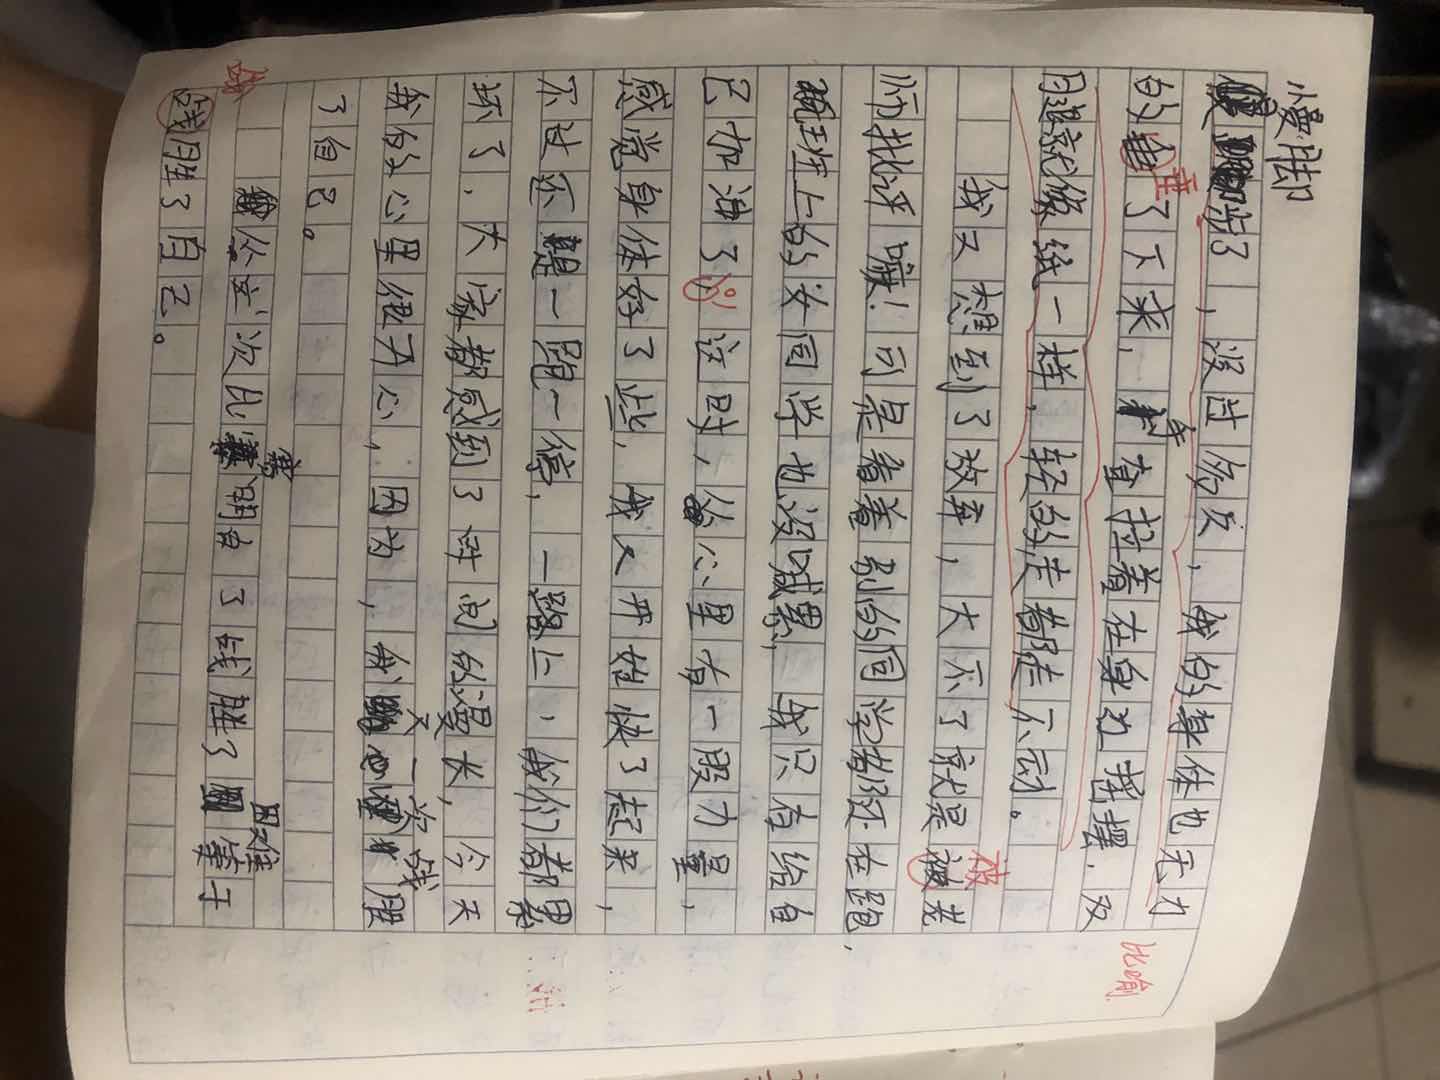 慢脚
步了，没过多久，我的身体也无力
的垂了下来，手查拉着在身边摇摆，双
腿就像纸一样，轻的走都走不动。
比喻
我又想到了放弃，大不了就是被老
师批评嘛！可是看着别的同学都还在跑，
班上的女同学也没喊累，我只在给自
己加油了，这时，心里有一股力量，
感觉身体好了些，我又开始快了起来，
不过还是一跑一停，一路上，我们都累
坏了，大家都感到了时间的漫长，今天
我的心里很开心，因为，我又一次战胜
了自己。
从这次比赛明白了战胜了困难等于
战胜了自己。